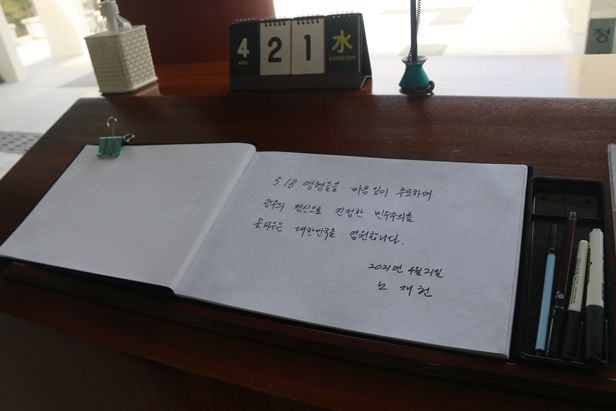 4 21 水
APRIL WEDNESDAY
정
5.18 영령들을 마음깊이 추모하며
광주의 정신으로 진정한 민주주의를
꽃피우는 대한민국을 염원합니다.
2021년 4월 21일
노재헌